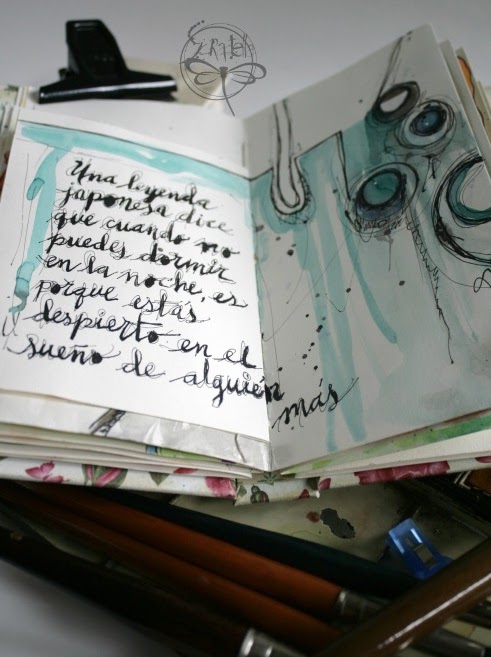 Una leyenda
japonesa dice
que cuando no
puedes dormir
en la noche, es
porque estás
despierto en el
sueño de alguién
más